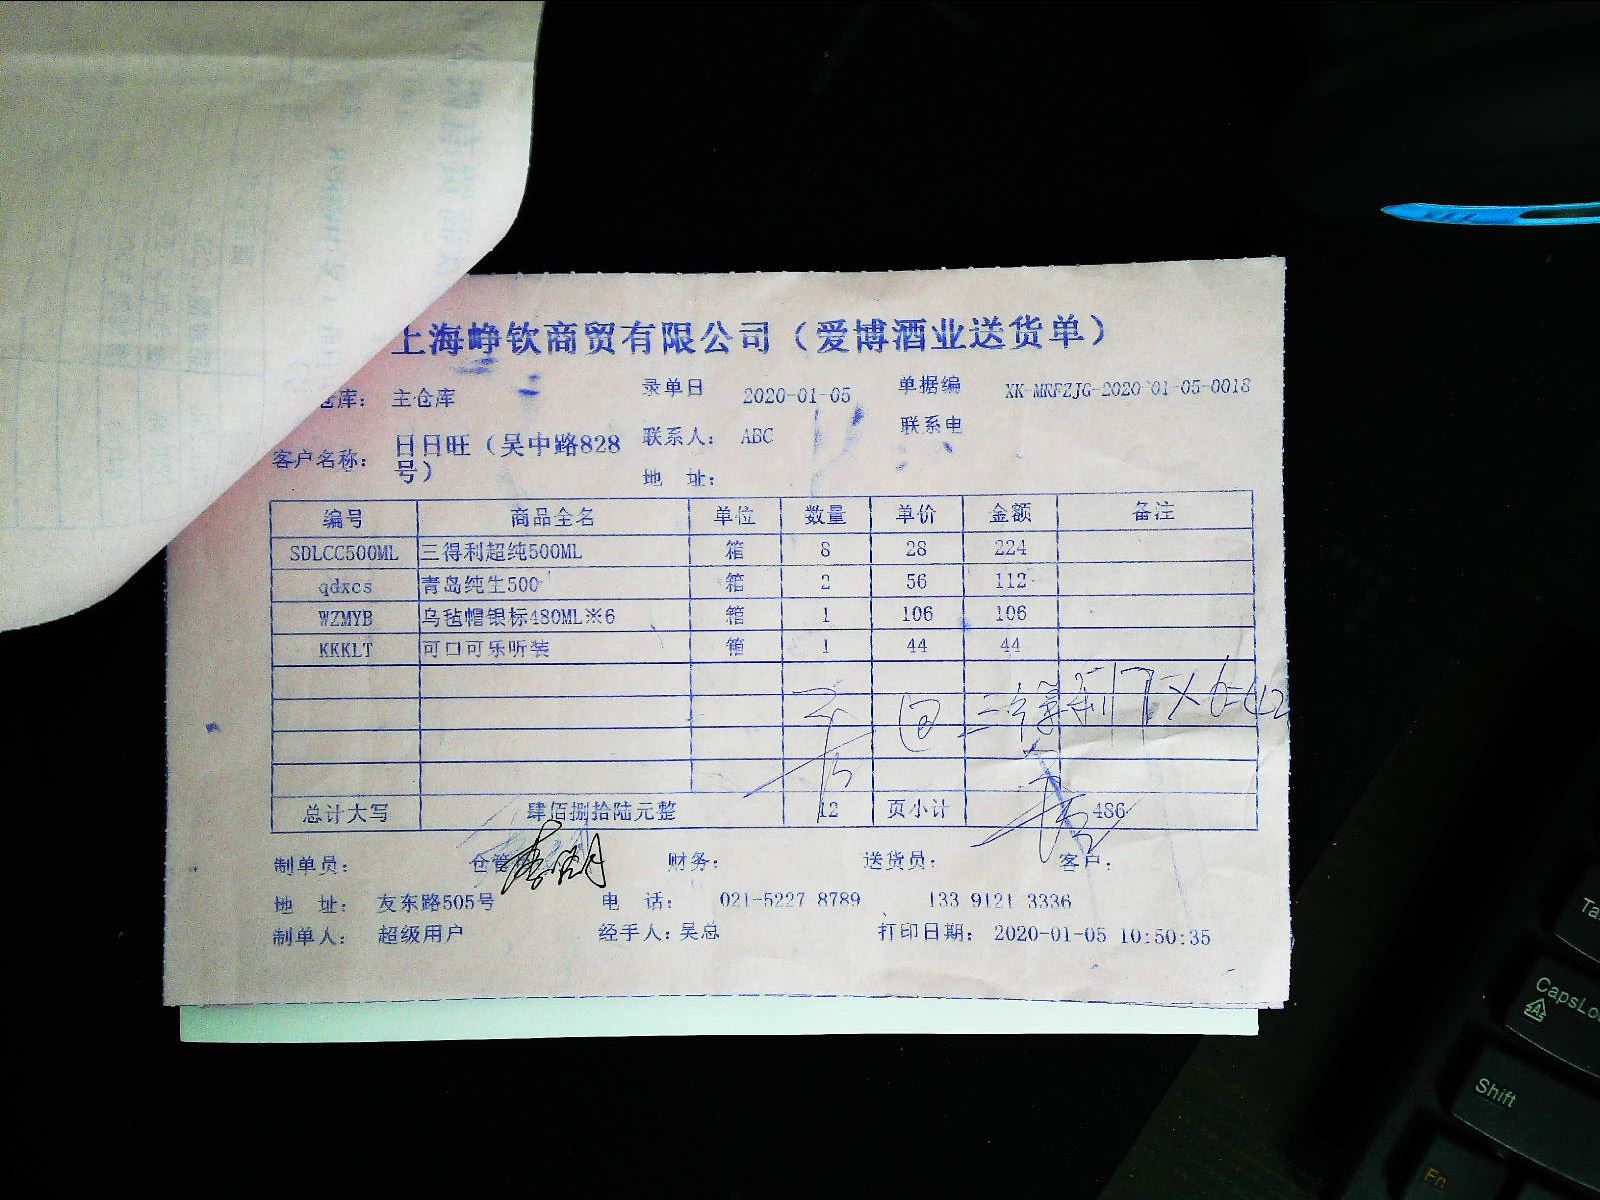 上海峥钦商贸有限公司（爱博酒业送货单）
仓库： 主仓库 录单日 2020-01-05 单据编 XK-MRFZJG-2020-01-05-0018
客户名称： 日日旺（吴中路828号） 联系人： ABC 联系电
地 址：
编号 商品全名 单位 数量 单价 金额 备注
SDLCC500ML 三得利超纯500ML 箱 8 28 224
qdxcs 青岛纯生500 箱 2 56 112
WZMYB 乌毡帽银标480ML※6 箱 1 106 106
KKKLT 可口可乐听装 箱 1 44 44
回 三得利
总计大写 肆佰捌拾陆元整 12 页小计 486
制单员： 仓管 财务： 送货员： 客户：
地 址： 友东路505号 电 话： 021-5227 8789 133 9121 3336
制单人： 超级用户 经手人：吴总 打印日期： 2020-01-05 10:50:35
CapsLo
Shift
Fn